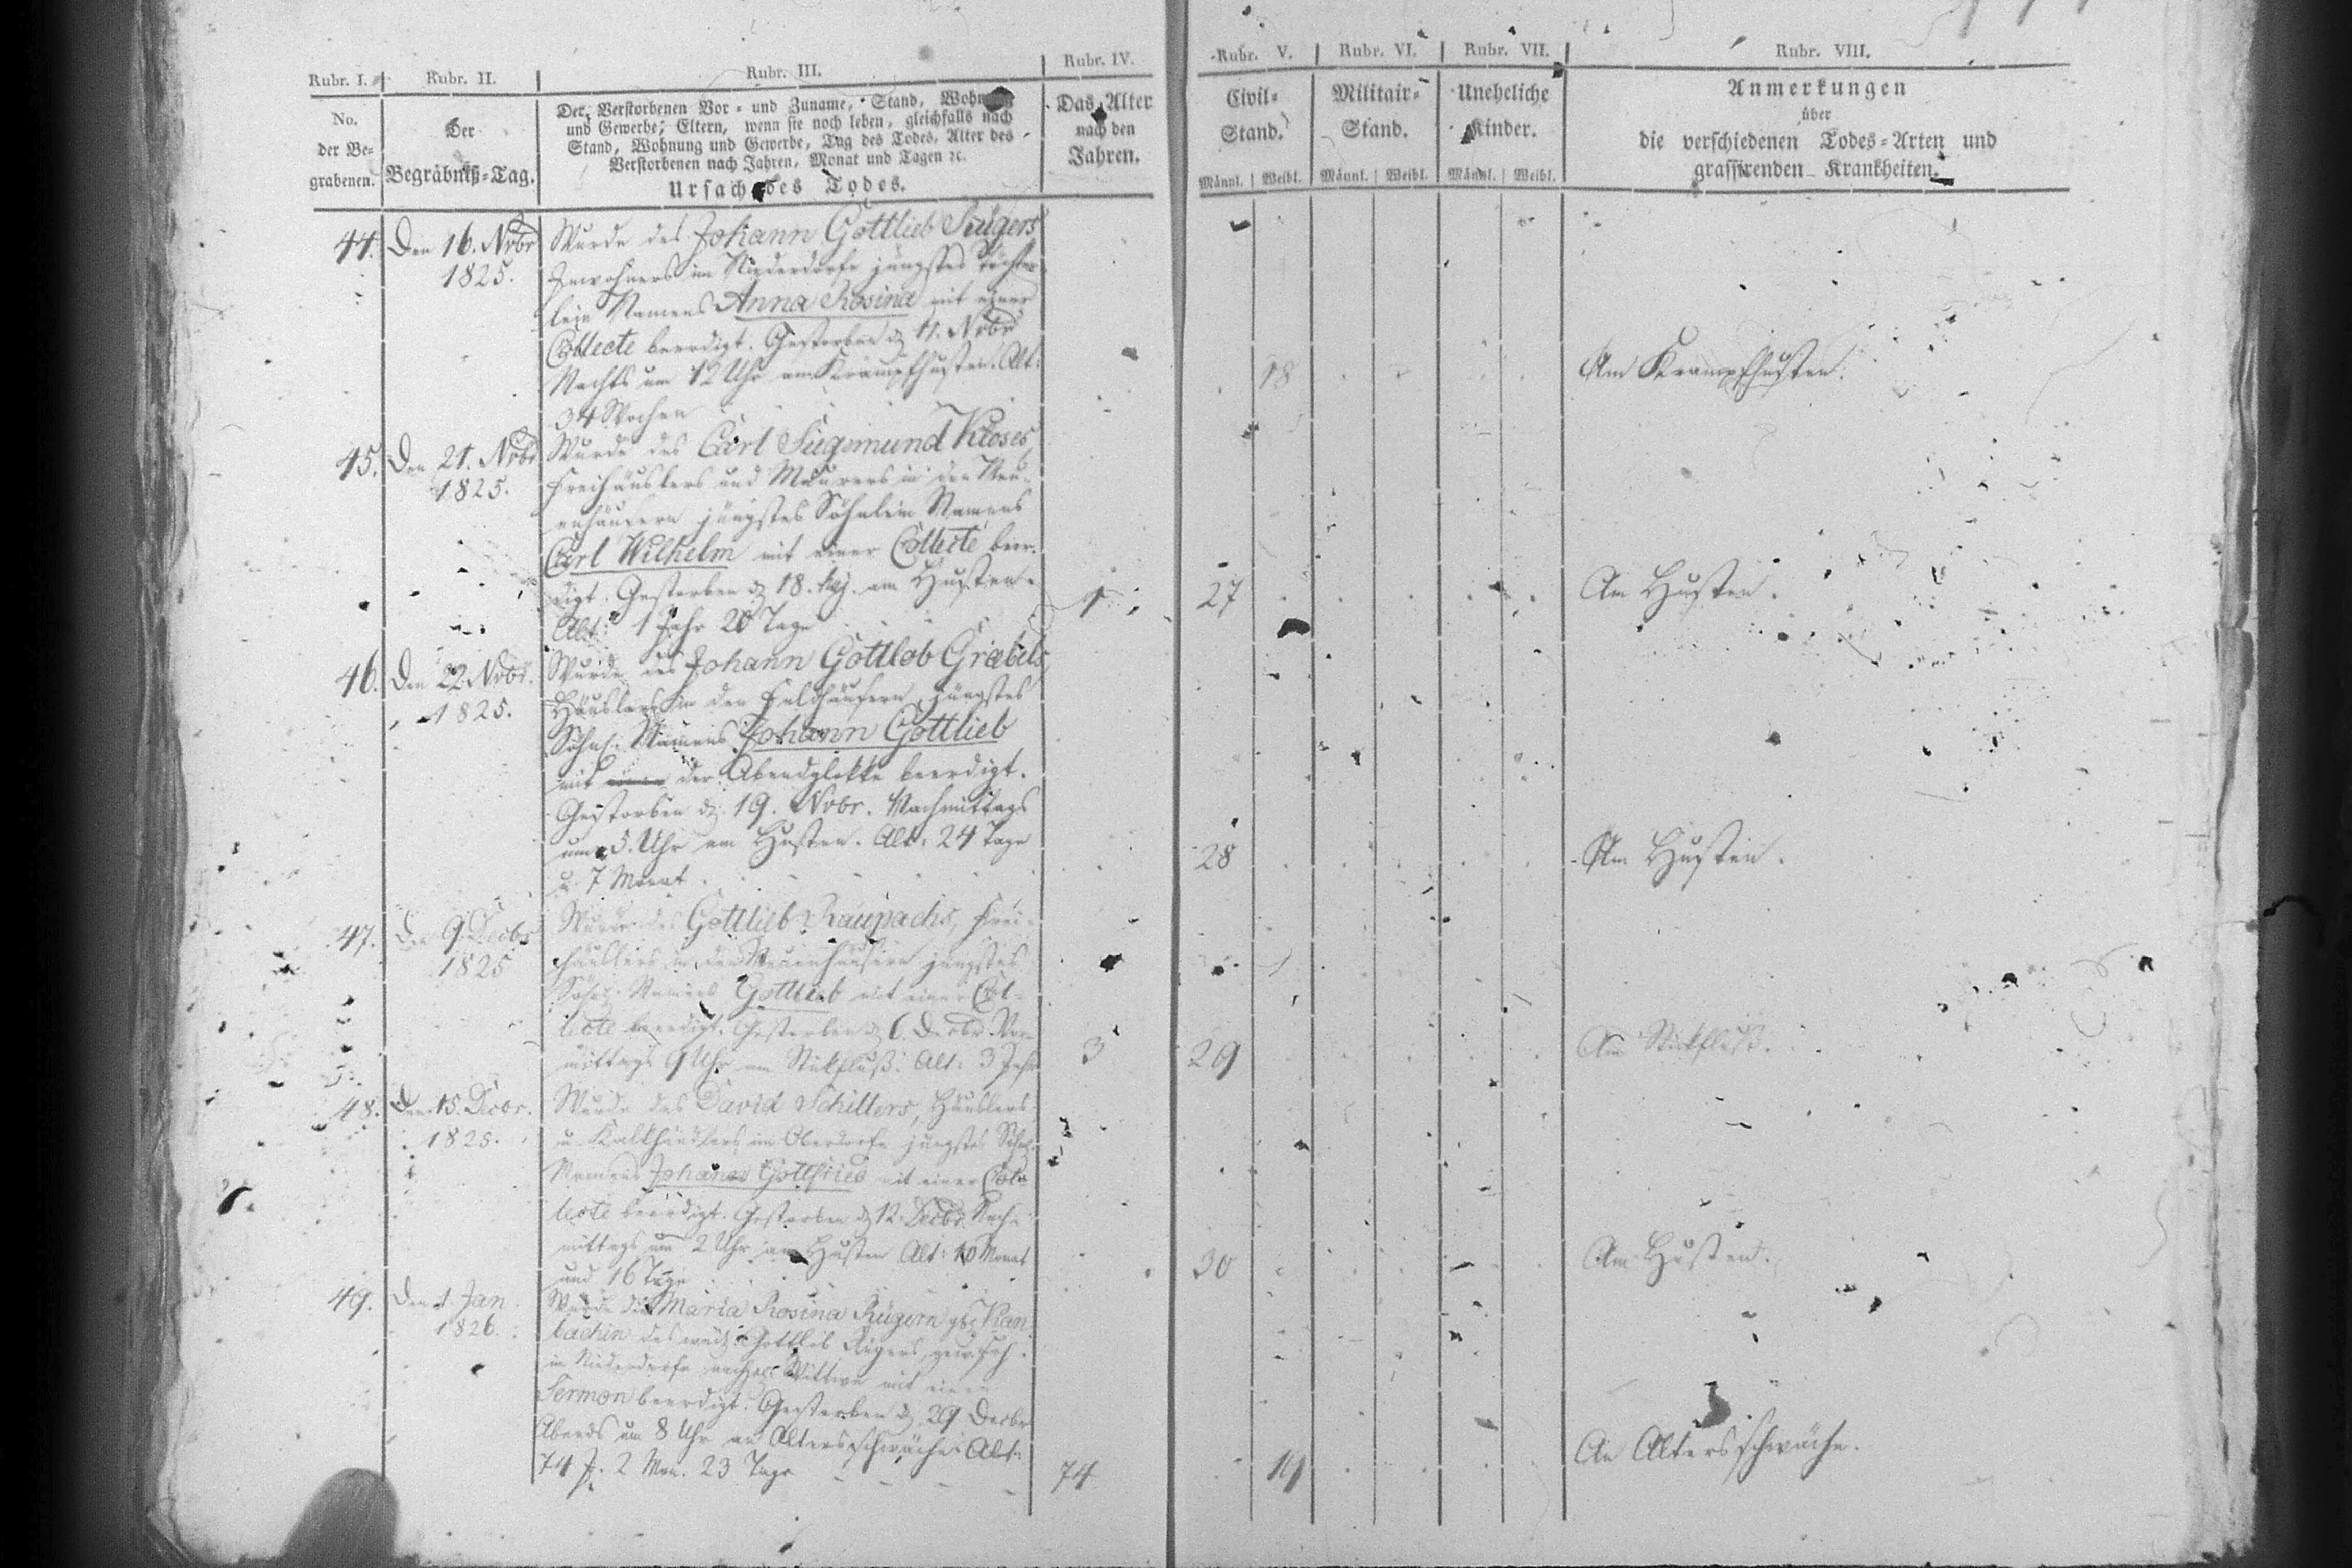 Rubr. I.
No.
der Be-
grabenen.
Rubr. II.
Der
Begräbniß-Tag.
Rubr. III.
Der Verstorbenen Vor- und Zuname, Stand, Wohnung
und Gewerbe; Eltern, wenn sie noch leben, gleichfalls nach
Stand, Wohnung und Gewerbe, Tag des Todes, Alter des
Verstorbenen nach Jahren, Monat und Tagen ꝛc.
Ursach des Todes.
Rubr. IV.
Das Alter
nach den
Jahren.
Rubr. V.
Civil-
Stand.
Männl. Weibl.
Rubr. VI.
Militair-
Stand.
Männl. Weibl.
Rubr. VII.
Uneheliche
Kinder.
Männl. Weibl.
Rubr. VIII.
Anmerkungen
über
die verschiedenen Todes-Arten und
grassirenden Krankheiten.
44.
Den 16. Nobr
1825.
Wurde des Johann Gottlieb
Inwohners im Niederdorfe jüngstes Töchter-
lein Namens Anna Rosina mit einer
Collecte beerdigt. Gestorben d. 11. Nobr
Nachts um 12 Uhr am Krampfhusten. Alt:
34 Wochen
18
Am Krampfhusten.
45.
Den 21. Nobr
1825.
Wurde des Carl Siegmund Kloses,
Freihäuslers und Maurers in den Neu-
enhäusern jüngstes Söhnlein Namens
Carl Wilhelm mit einer Collecte beer-
digt. Gestorben d. 18. huj. am Husten.
Alt: 1 Jahr 20 Tage
1
27
Am Husten.
46.
Den 22. Nobr.
1825.
Wurde des Johann Gottlob Græbels,
Häuslers in den Feldhäusern jüngstes
Söhnl. Namens Johann Gottlieb
mit der Abendglokke beerdigt.
Gestorben d. 19. Nobr. Nachmittags
um 5. Uhr am Husten. Alt: 24 Tage
u. 7 Monat.
28
Am Husten.
47.
Den 9. Decbr
1825
Wurde des Gottlieb Raupachs, Frei-
häuslers in den Neuenhäusern jüngstes
Söhnl. Namens Gottlieb mit einer Col-
lecte beerdigt. Gestorben d. 6. Decbr. Vor-
mittags 9 Uhr am Stikfluß. Alt: 3 Jahr
3
29
Am Stikfluß.
48.
Den 15. Decbr.
1825.
Wurde des David Schillers, Häuslers
u. Kalkhändlers im Oberdorfe jüngstes Söhnl.
Namens Johann Gottfried mit einer Col-
lecte beerdigt. Gestorben d. 12. Decbr. Nach-
mittags um 2 Uhr am Husten Alt: 10 Monat
und 16 Tage
30
Am Husten.
49.
Den 1. Jan
1826.
Wurde die Maria Rosina Rügern gb.
des Gottlieb Rügers,
im Niederdorfe Wittwe mit einer
Sermon beerdigt. Gestorben d. 29 Decbr
Abends um 8 Uhr an Altersschwäche. Alt:
74 J. 2 Mon. 23 Tage
74
19
An Altersschwäche.